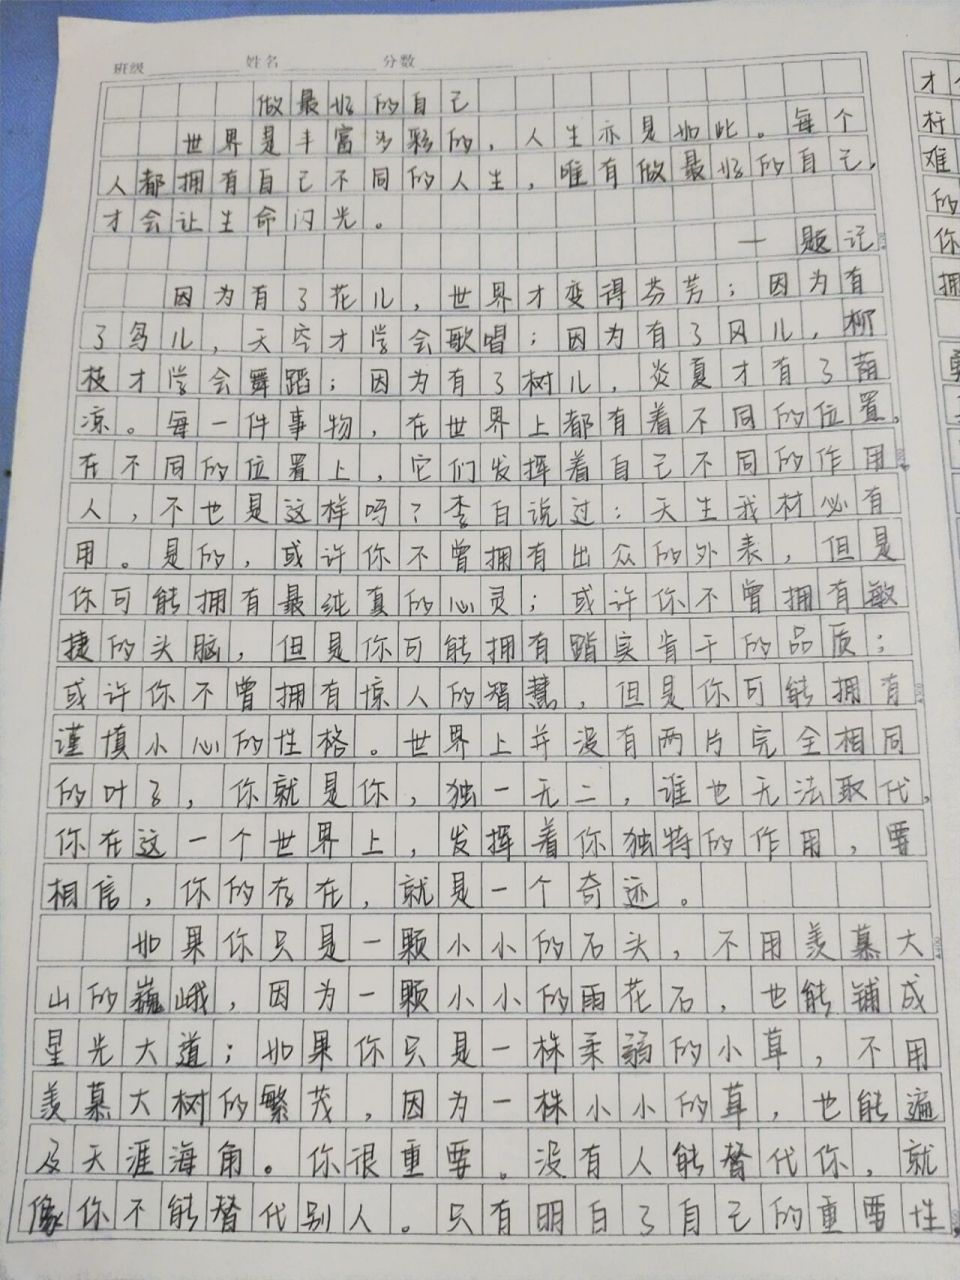 班级 姓名 分数
做最好的自己
世界是丰富多彩的，人生亦是如此。每个
人都拥有自己不同的人生，唯有做最好的自己，
才会让生命闪光。
— 题记
因为有了花儿，世界才变得芬芳；因为有
了鸟儿，天空才学会歌唱；因为有了风儿，柳
枝才学会舞蹈；因为有了树儿，炎夏才有了荫
凉。每一件事物，在世界上都有着不同的位置，
在不同的位置上，它们发挥着自己不同的作用
人，不也是这样吗？李白说过：天生我材必有
用。是的，或许你不曾拥有出众的外表，但是
你可能拥有最纯真的心灵；或许你不曾拥有敏
捷的头脑，但是你可能拥有踏实肯干的品质；
或许你不曾拥有惊人的智慧，但是你可能拥有
谨慎小心的性格。世界上并没有两片完全相同
的叶子，你就是你，独一无二，谁也无法取代，
你在这一个世界上，发挥着你独特的作用，要
相信，你的存在，就是一个奇迹。
如果你只是一颗小小的石头，不用羡慕大
山的巍峨，因为一颗小小的雨花石，也能铺成
星光大道；如果你只是一株柔弱的小草，不用
羡慕大树的繁茂，因为一株小小的草，也能遍
及天涯海角。你很重要。没有人能替代你，就
像你不能替代别人。只有明白了自己的重要性
才
村
难
的
你
拥